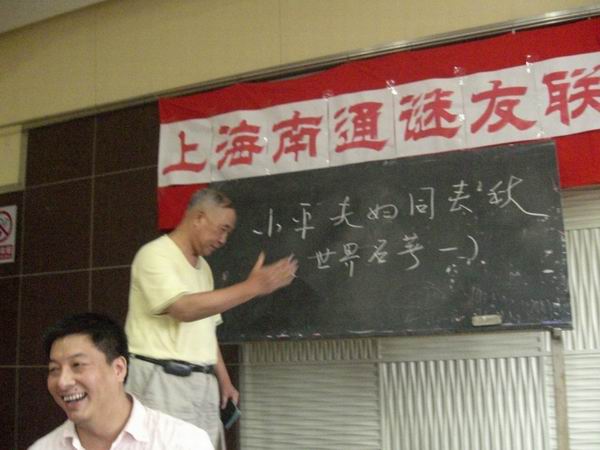 上海南通谜友联
小平夫妇同春秋
世界名著一)